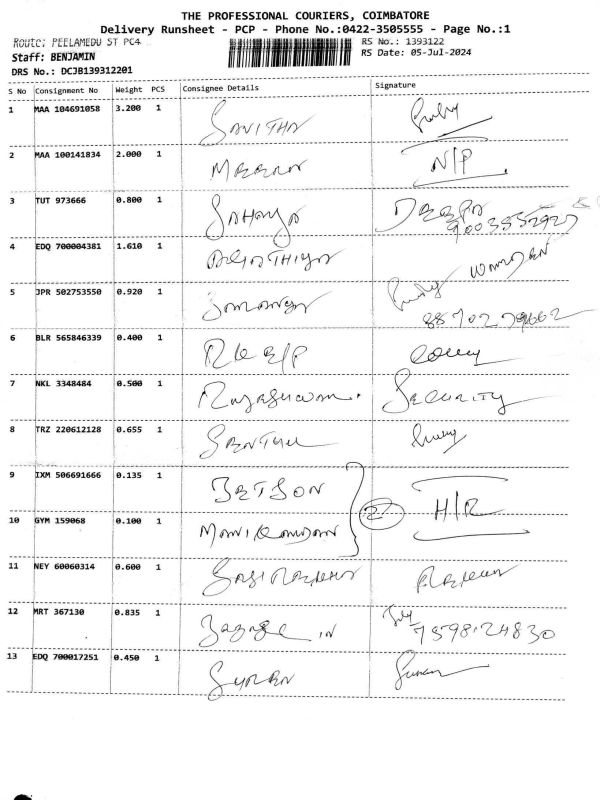 THE PROFESSIONAL COURIERS, COIMBATORE
Delivery Runsheet - PCP - Phone No.:0422-3505555 - Page No.:1
Route: PEELAMEDU ST PC4 RS No.: 1393122
Staff: BENJAMIN RS Date: 05-Jul-2024
DRS No.: DCJB139312201
S No Consignment No Weight PCS Consignee Details Signature
1 MAA 104691058 3.200 1 SAVITHA
2 MAA 100141834 2.000 1 MEERAN N/P
3 TUT 973666 0.800 1 SAHAYA DEEPA
4 EDQ 700004381 1.610 1
5 JPR 502753550 0.920 1
6 BLR 565846339 0.400 1
7 NKL 3348484 0.500 1 SECURITY
8 TRZ 220612128 0.655 1
9 IXM 506691666 0.135 1 JETSON
10 GYM 159068 0.100 1 MANIKANDAN 2 H/R
11 NEY 60060314 0.600 1
12 MRT 367130 0.835 1 7598124830
13 EDQ 700017251 0.450 1 SUREN